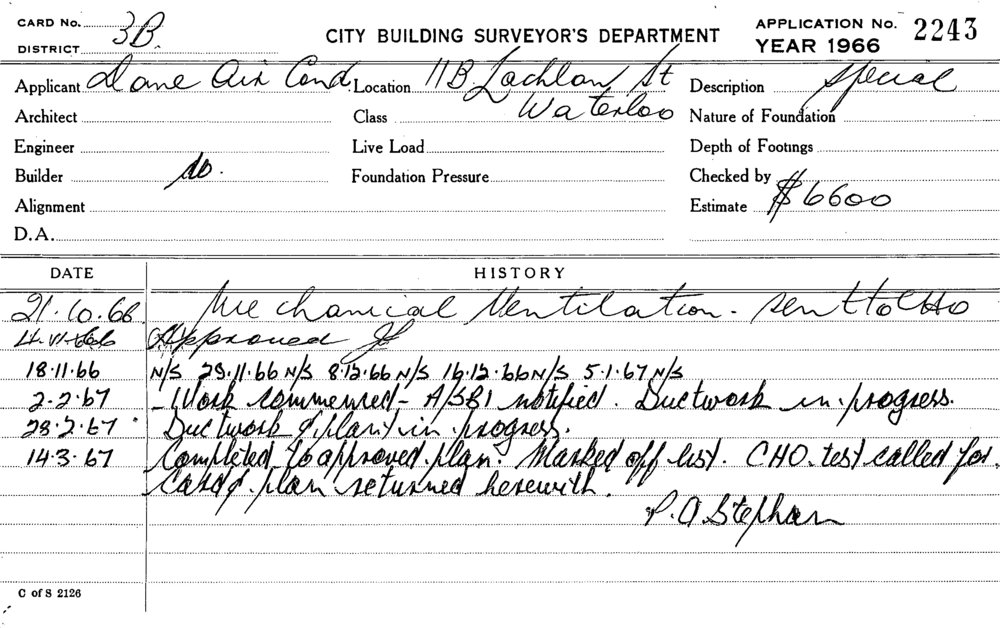 CARD No.
DISTRICT 3B.
CITY BUILDING SURVEYOR'S DEPARTMENT
APPLICATION No. 2243
YEAR 1966
Applicant Dane Air Cond Location 11B Lachlan St Description Special
Architect Class Waterloo Nature of Foundation
Engineer Live Load Depth of Footings
Builder do. Foundation Pressure Checked by
Alignment Estimate $6600
D.A.
DATE HISTORY
21.10.66 Mechanical Ventilation. sent to CHO
4.11.66 Approved
18.11.66 N/S 29.11.66 N/S 8.12.66 N/S 16.12.66 N/S 5.1.67 N/S
2.2.67 - Work commenced - A/SBI notified. Ductwork in progress.
28.2.67 Ductwork & plant in progress.
14.3.67 Completed to approved plan. Marked off list. CHO. test called for.
Card & plan returned herewith.
P.A Stephan
C of S 2126